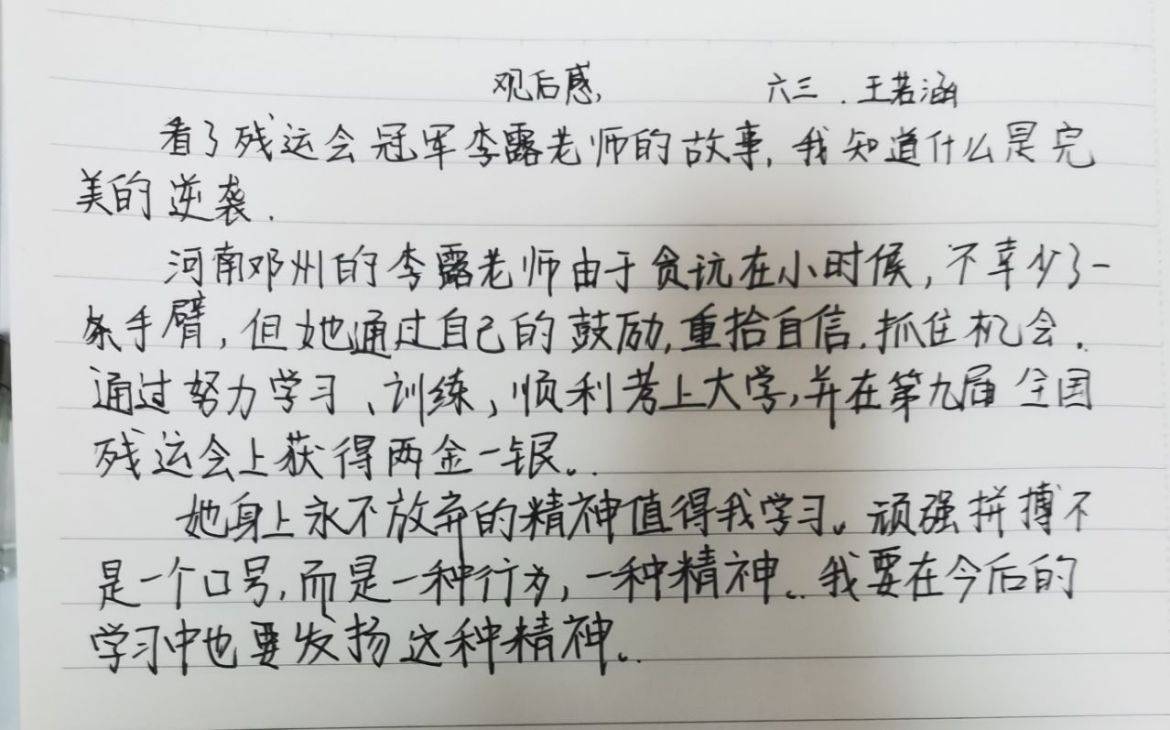 观后感, 六三. 王若涵
看了残运会冠军李露老师的故事,我知道什么是完
美的逆袭.
河南邓州的李露老师由于贪玩在小时候,不幸少了一
条手臂,但她通过自己的鼓励,重拾自信.抓住机会.
通过努力学习、训练,顺利考上大学,并在第九届全国
残运会上获得两金一银。
她身上永不放弃的精神值得我学习。顽强拼搏不
是一个口号,而是一种行为,一种精神。我要在今后的
学习中也要发扬这种精神。